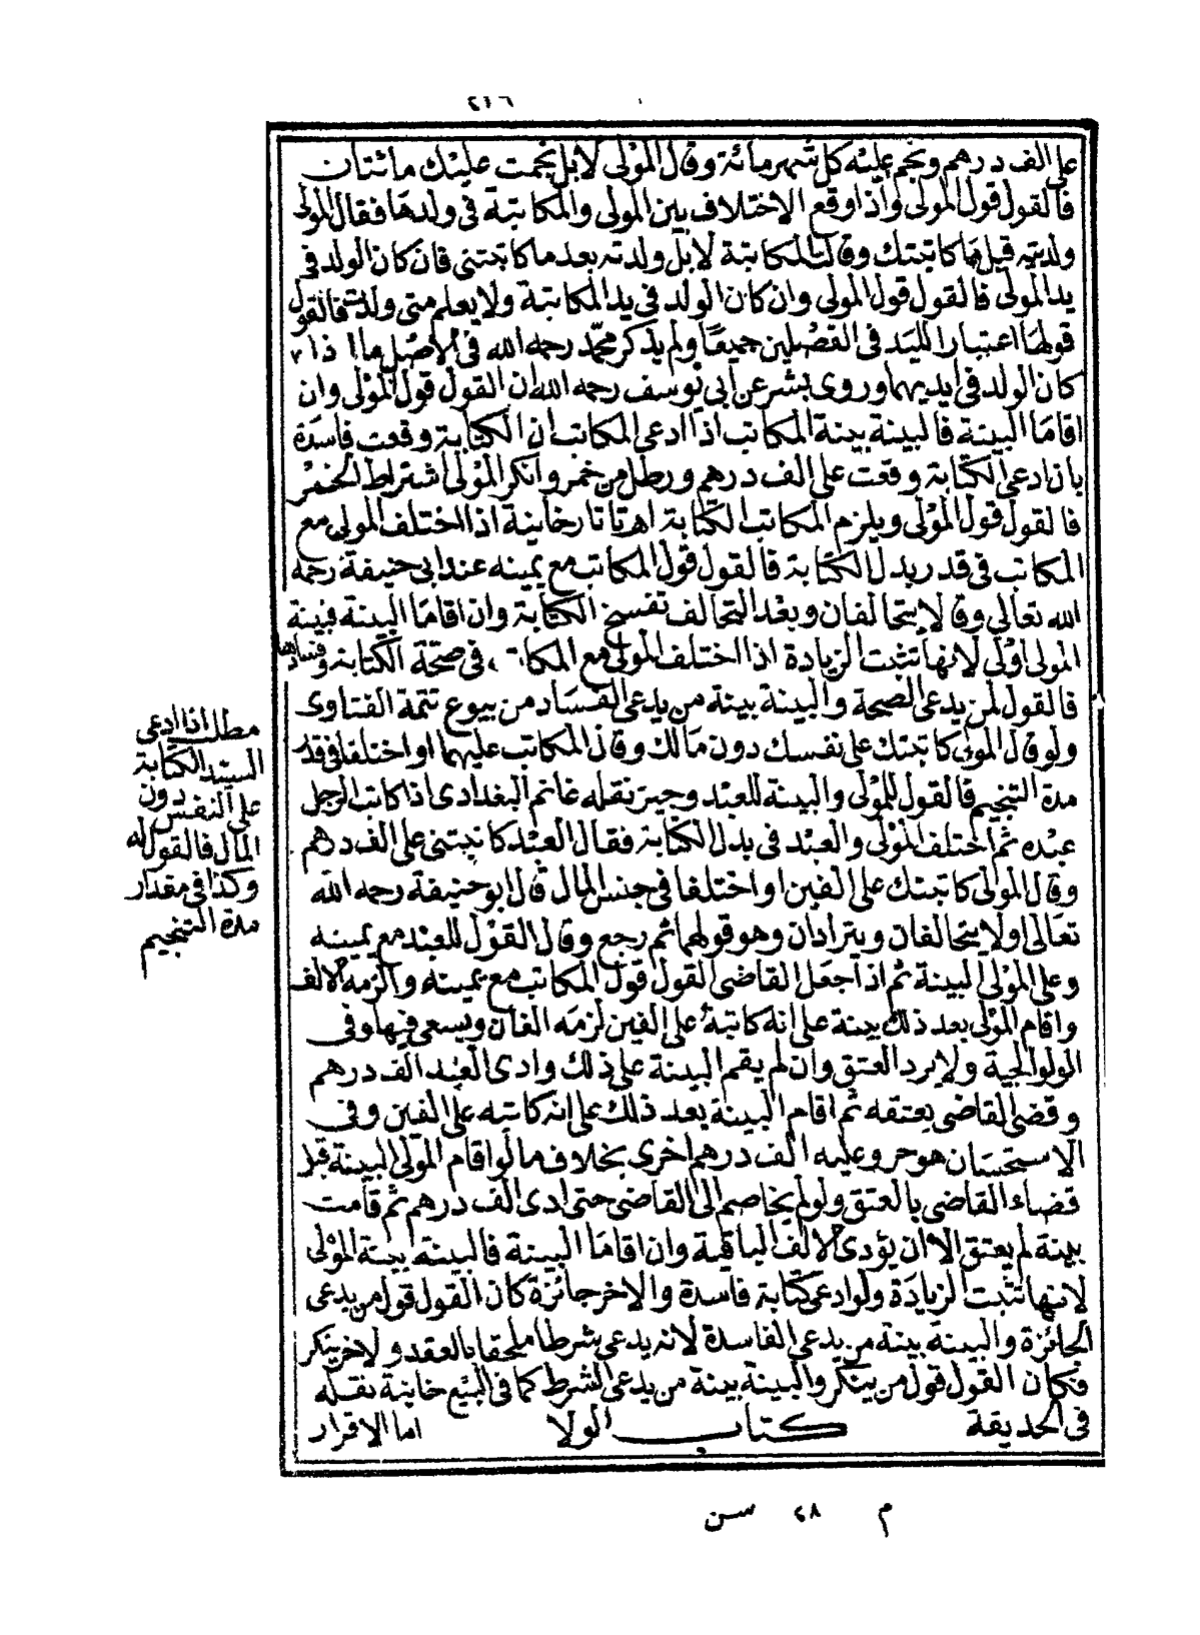 ٤١٦
على الف درهم ونجم عليه كل شهر مائة وقال المولى لا بل نجمت عليك مائتان
فالقول قول المولى واذا وقع الاختلاف بين المولى والمكاتبة فى ولدها فقال المولى
ولدتيه قبل ما كاتبتك وقالت المكاتبة لا بل ولدته بعد ما كاتبتنى فان كان الولد فى
يد المولى فالقول قول المولى وان كان الولد فى يد المكاتبة ولا يعلم متى ولدته فالقول
قولها اعتبارا لليد فى الفصلين جميعا ولم يذكر محمد رحمه الله فى الاصل ما اذا
كان الولد فى ايديهما وروى بشر عن ابى يوسف رحمه الله ان القول قول المولى وان
اقاما البينة فالبينة بينة المكاتب اذا ادعى المكاتب ان الكتابة وقعت فاسدة
بان ادعى الكتابة وقعت على الف درهم ورطل من خمر وانكر المولى اشتراط الخمر
فالقول قول المولى ويلزم المكاتب الكتابة اه تاتارخانية اذا اختلف المولى مع
المكاتب فى قدر بدل الكتابة فالقول قول المكاتب مع يمينه عند ابى حنيفة رحمه
الله تعالى وقالا يتحالفان وبعد التحالف تفسخ الكتابة وان اقاما البينة فبينة
المولى اولى لانها تثبت الزيادة اذا اختلف المولى مع المكاتب فى صحة الكتابة وفسادها
فالقول لمن يدعى الصحة والبينة بينة من يدعى الفساد من بيوع تتمة الفتاوى
ولو قال المولى كاتبتك على نفسك دون مالك وقال المكاتب عليهما او اختلفا فى قدر
مدة التنجيم فالقول للمولى والبينة للعبد وجيز نقله غانم البغدادى اذا كاتب الرجل
عبده ثم اختلف المولى والعبد فى بدل الكتابة فقال العبد كاتبتنى على الف درهم
وقال المولى كاتبتك على الفين او اختلفا فى جنس المال قال ابو حنيفة رحمه الله
تعالى اولا يتحالفان ويترادان وهو قولهما ثم رجع وقال القول للعبد مع يمينه
وعلى المولى البينة ثم اذا جعل القاضى القول قول المكاتب مع يمينه والزمه الالف
واقام المولى بعد ذلك بينة على انه كاتبه على الفين لزمه الفان ويسعى فيها وفى
الولوالجية ولا يرد العتق وان لم يقم البينة على ذلك وادى العبد الف درهم
وقضى القاضى بعتقه ثم اقام البينة بعد ذلك على انه كاتبه على الفين وفى
الاستحسان هو حر وعليه الف درهم اخرى بخلاف ما لو اقام المولى البينة قبل
قضاء القاضى بالعتق ولو لم يخاصم الى القاضى حتى ادى الف درهم ثم قامت
بينة لم يعتق الا ان يؤدى الالف الباقية وان اقاما البينة فالبينة بينة المولى
لانها تثبت الزيادة ولو ادعى كتابة فاسدة والاخر جائزة كان القول قول من يدعى
الجائزة والبينة بينة من يدعى الفاسدة لانه يدعى شرطا ملحقا بالعقد والاخر ينكر
فكان القول قول من ينكر والبينة بينة من يدعى الشرط كما فى البيع خانية نقله
فى الحديقة كتاب الولا اما الاقرار
مطلب اذا ادعى
السيد الكتابة
على النفس دون
المال فالقول له
وكذا فى مقدار
مدة التنجيم
م ٤٨ سن